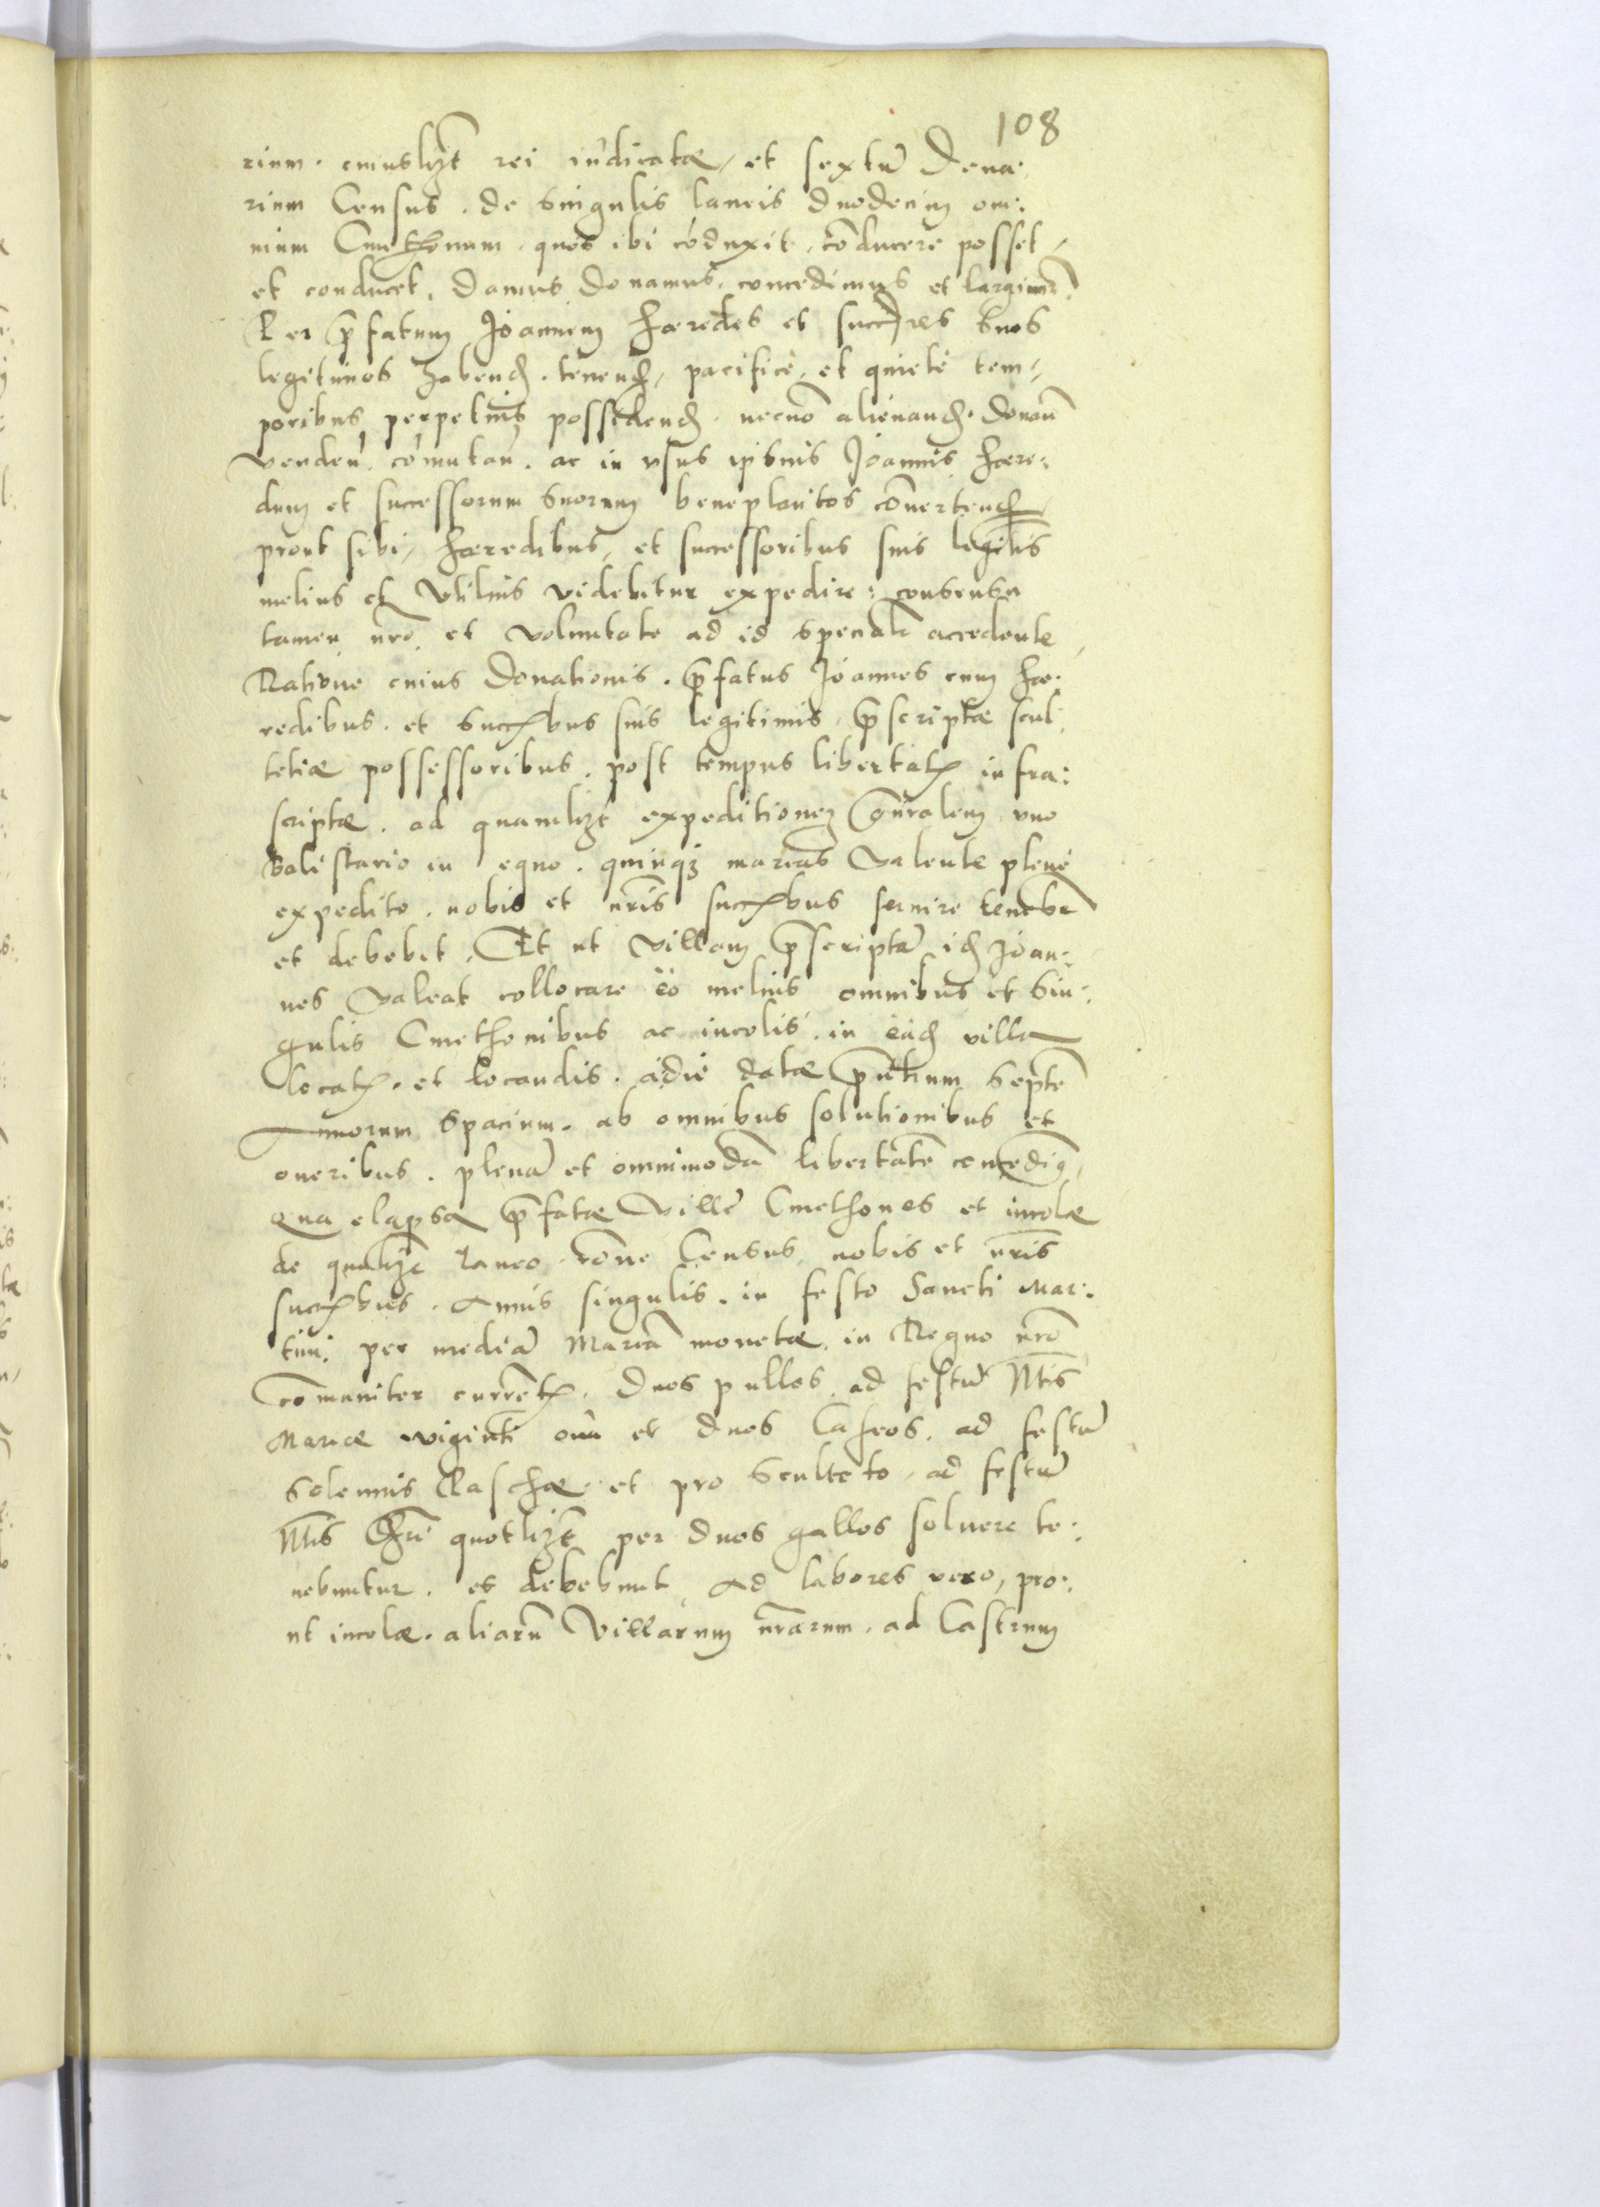 108
rium. cuiuslꝫt rei iudicatæ, et sextū Dena:
rium Census. de singulis laneis duodecim om:
nium Cmethonum. quos ibi cōduxit, cōducere posset,
et conducet, Damus Donamus, concedimus et largimr̄.
Per p̄fatum Joannem hæredes et succ̄res suos
legitimos habend. tenend, pacifice, et quiete tem:
poribus perpetuis possidend. necnō alienand. donan̄
venden̄. cōmutan̄. ac in vsus ipsius Joannis hære:
dum et successorum suorum beneplacitos cōuertend,
prout sibi, hæredibus, et successoribus suis legit̄is
melius et vtilius videbitur expedire: consensu
tamen nr̄o, et voluntate ad id speciali accedente,
Ratione cuius Donationis. p̄fatus Joannes cum hæ:
redibus. et succ̄bus suis legitimis, p̄scriptæ scul:
tetiæ possessoribus. post tempus libertatꝭ infra:
scriptæ. ad quamlꝫt expeditionem gn̄ralem vno
balistario in equo. quinqꝫ marcas valente plene
expedito. nobis et nr̄is succ̄bus seruire tenebr̄
et debebit. Et ut villam p̄scriptā id Joan:
nes valeat collocare eo melius omnibus et sin:
gulis Cmethonibus ac incolis. in eād villa
locatꝭ. et locandis. a die datæ p̄ntium septē
Annorum spacium. ab omnibus solutionibus et
oneribus. plenā et omnimodā libertatē concedimꝰ,
qua elapsa p̄fatæ villæ Cmethones et incolæ
de quolꝫt laneo. rōne Census, nobis et nr̄is
succ̄bus. Annis singulis. in festo Sancti Mar:
tini. per mediā Marcā monetæ. in Regno nr̄o
cōmuniter currentꝭ. duos pullos. ad festū Nt̄is
Mariæ viginti oua et duos Caseos. ad festū
solennis Paschæ. et pro Sculteto, ad festū
Nt̄is Chr̄i quotlꝫt per duos gallos soluere te:
nebuntur. et debebunt. Ad labores vero, pro:
ut incolæ. aliarū villarum nr̄arum. ad Castrum